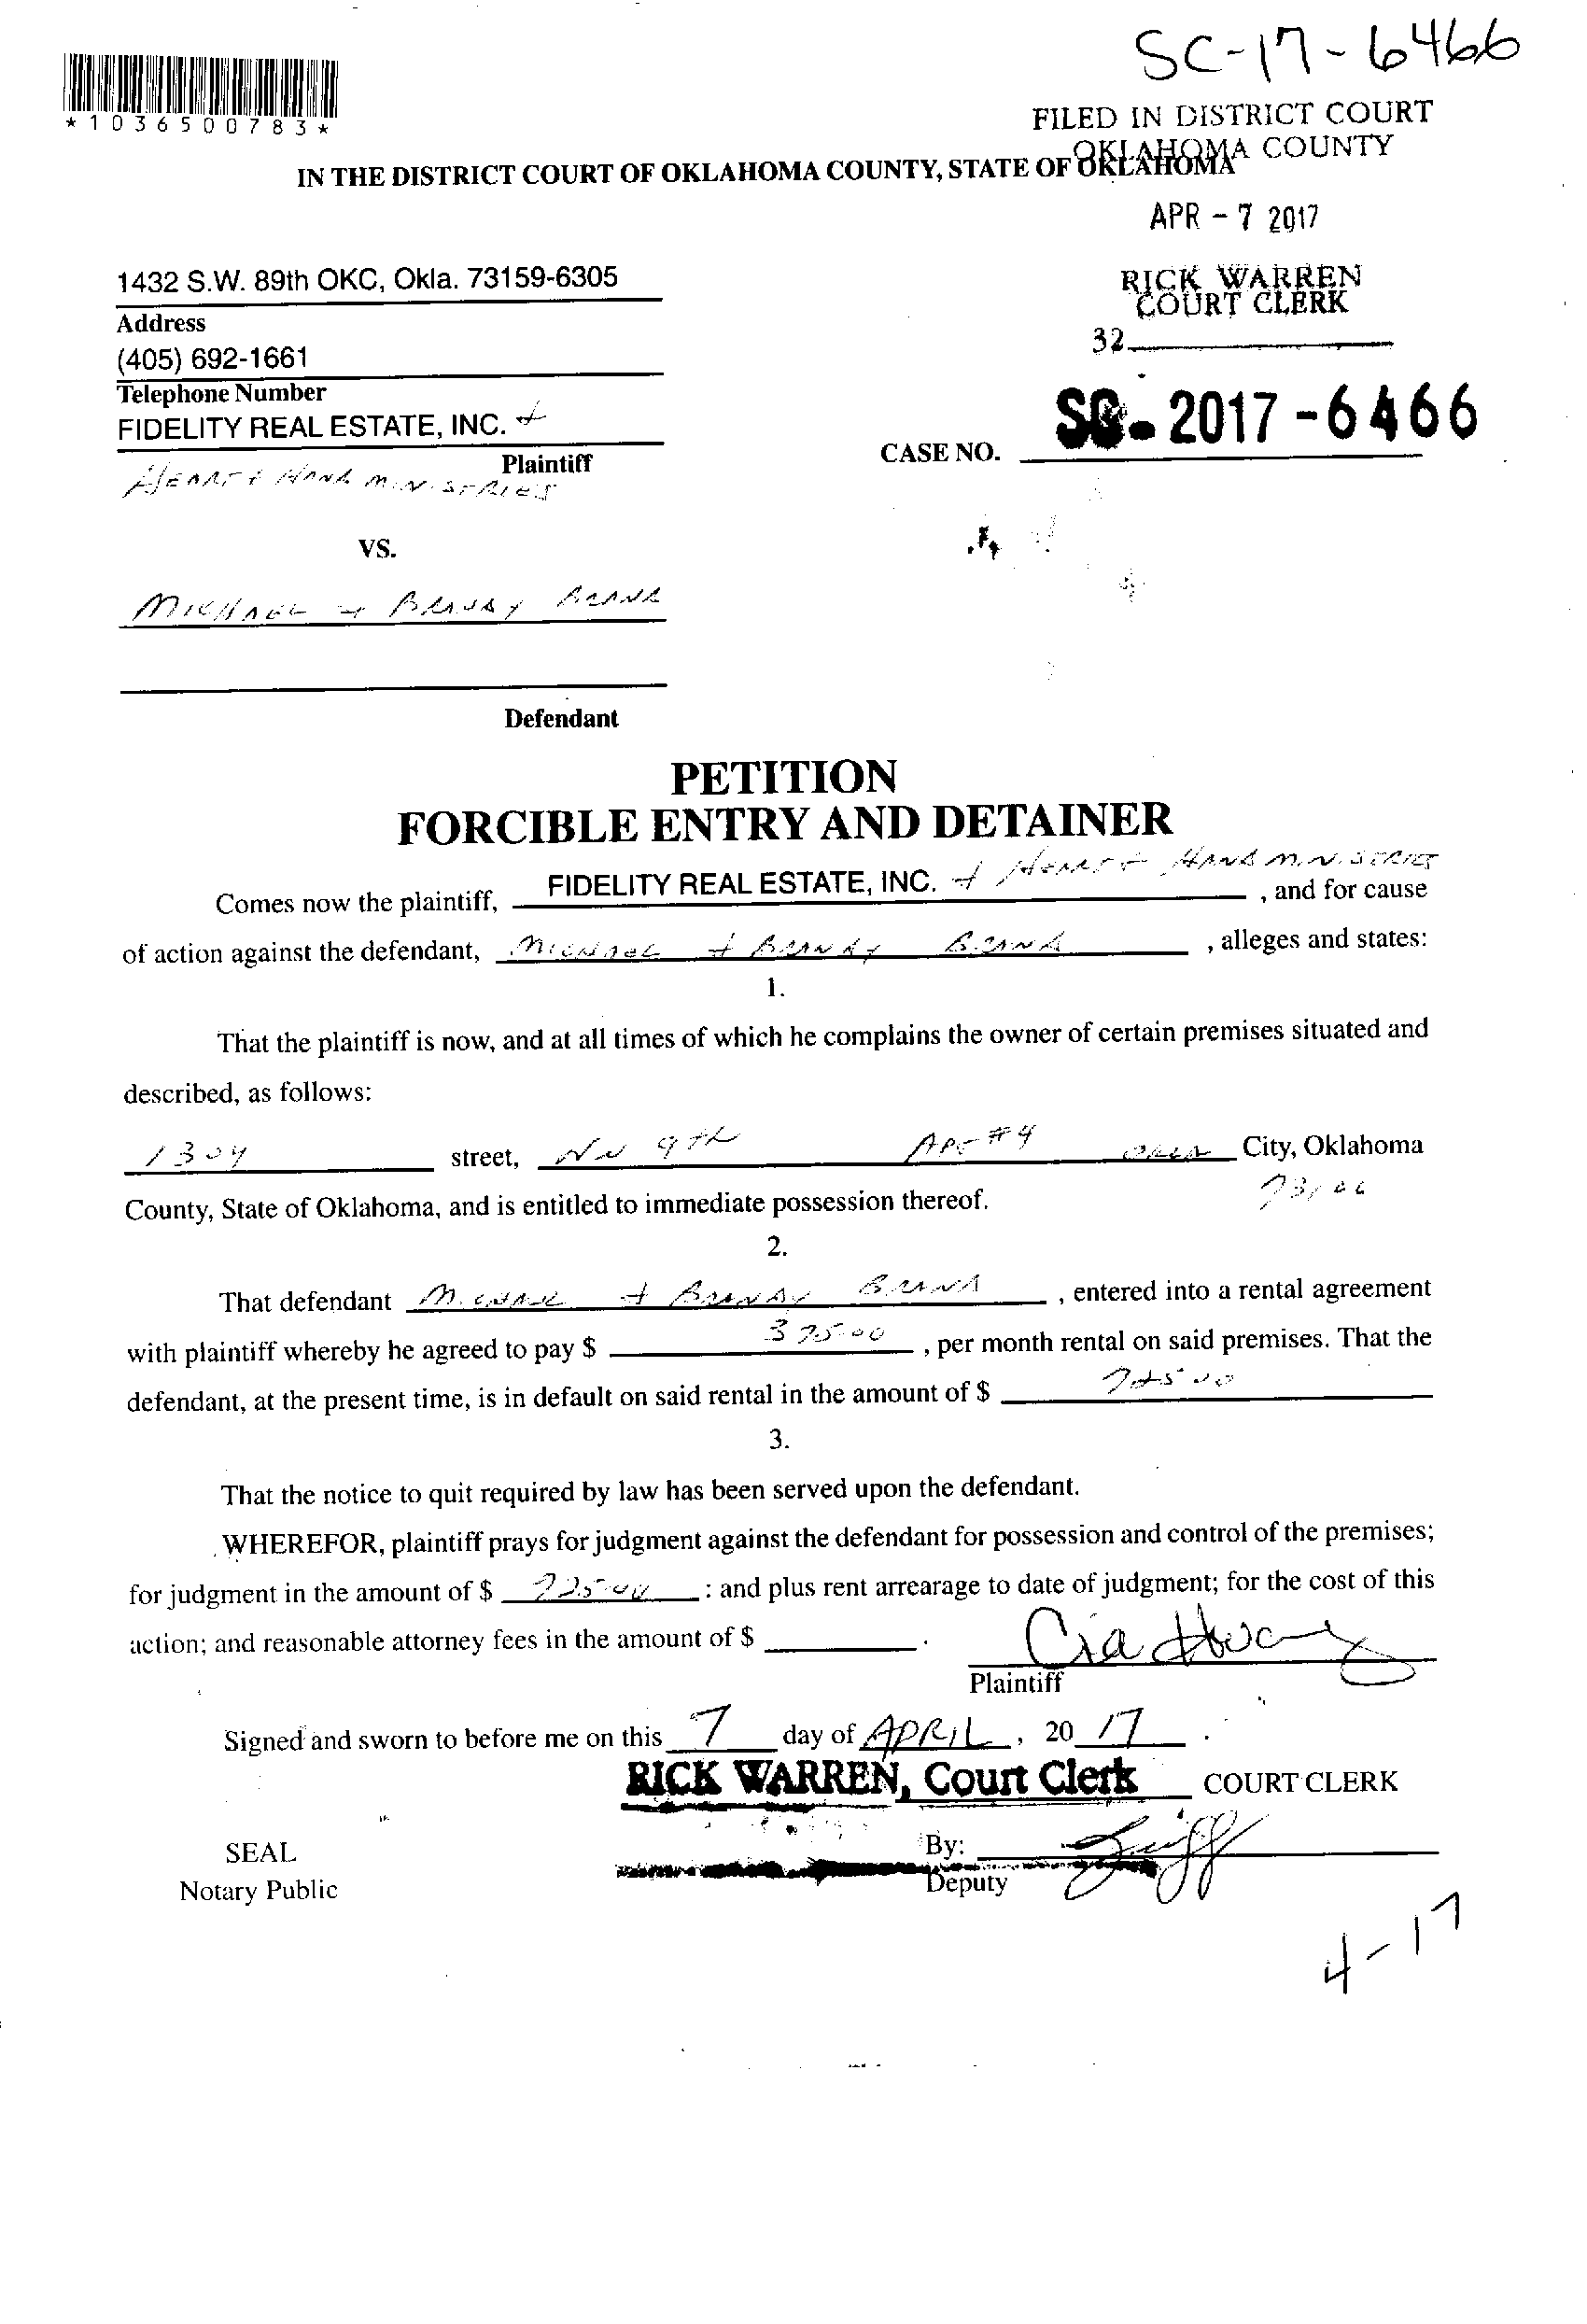 SC-17-6466
*1036500783*
FILED IN DISTRICT COURT
OKLAHOMA COUNTY
IN THE DISTRICT COURT OF OKLAHOMA COUNTY, STATE OF OKLAHOMA
APR - 7 2017
1432 S.W. 89th OKC, Okla. 73159-6305
RICK WARREN
COURT CLERK
Address
32
(405) 692-1661
Telephone Number
FIDELITY REAL ESTATE, INC. +
CASE NO. SC-2017-6466
Plaintiff
HEART & HAND MINISTRIES
VS.
MICHAEL + BRANDY BRAND
Defendant
PETITION
FORCIBLE ENTRY AND DETAINER
Comes now the plaintiff, FIDELITY REAL ESTATE, INC. + HEART & HAND MINISTRIES, and for cause
of action against the defendant, MICHAEL + BRANDY BRAND, alleges and states:
1.
That the plaintiff is now, and at all times of which he complains the owner of certain premises situated and
described, as follows:
1304 street, NW 9th APT #4 OKLA City, Oklahoma
73106
County, State of Oklahoma, and is entitled to immediate possession thereof.
2.
That defendant MICHAEL + BRANDY BRAND, entered into a rental agreement
with plaintiff whereby he agreed to pay $ 375.00, per month rental on said premises. That the
defendant, at the present time, is in default on said rental in the amount of $ 725.00
3.
That the notice to quit required by law has been served upon the defendant.
WHEREFOR, plaintiff prays for judgment against the defendant for possession and control of the premises;
for judgment in the amount of $ 725.00 : and plus rent arrearage to date of judgment; for the cost of this
action; and reasonable attorney fees in the amount of $ ______.
Plaintiff
Signed and sworn to before me on this 7 day of APRIL, 20 17.
RICK WARREN, Court Clerk COURT CLERK
SEAL
By:
Notary Public
Deputy
4-17